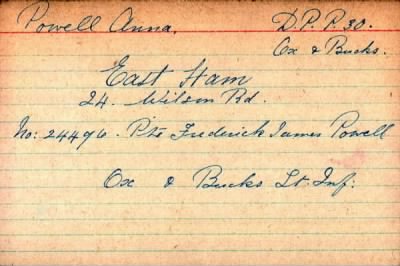 Powell Anna. D.P. P. 30.
Ox & Bucks.
East Ham
24. Wilson Rd.
No: 24496. Pte Frederick James Powell
Ox & Bucks Lt. Inf: